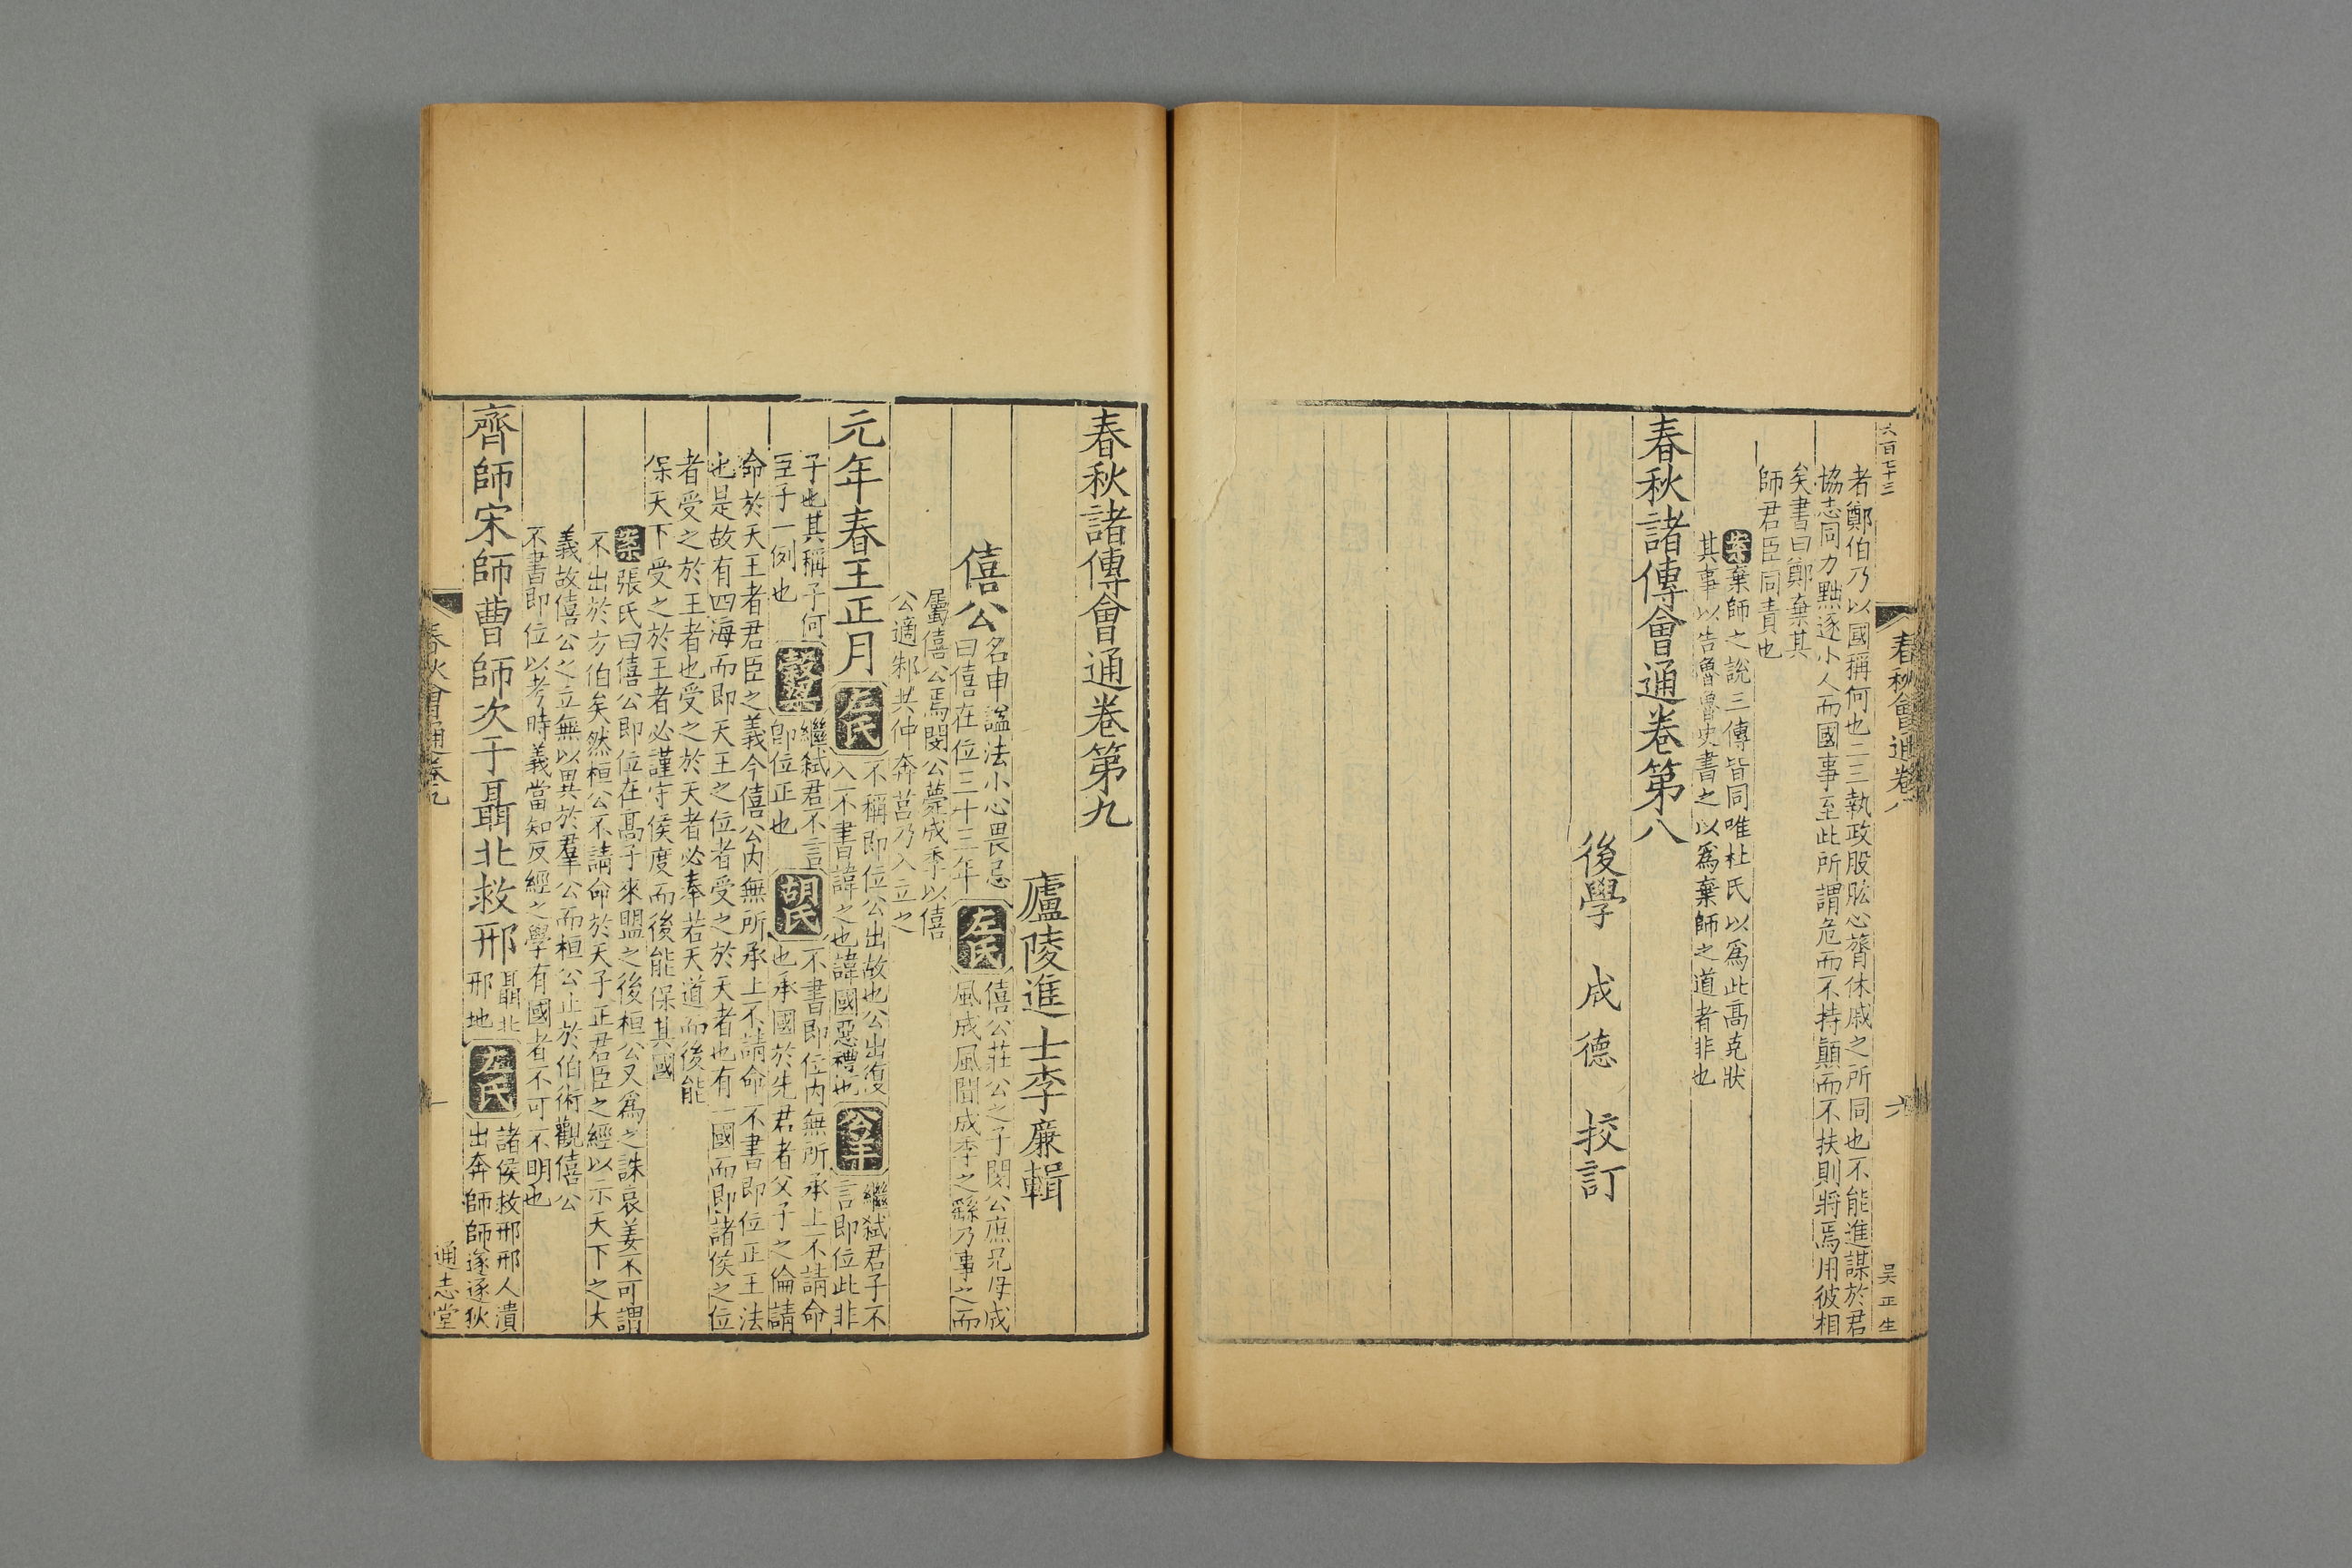 六百七十三
吴正生
春秋會通卷八
六
者鄭伯乃以國稱何也二三執政股肱心膂休戚之所同也不能進謀於君
協志同力黜逐小人而國事至此所謂危而不持顛而不扶則將焉用彼相
矣書曰鄭棄其
師君臣同責也
案棄師之說三傳皆同唯杜氏以爲此高克狀
其事以告魯魯史書之以爲棄師之道者非也
春秋諸傳會通卷第八
後學 成德 挍訂
春秋諸傳會通卷第九
廬陵進士李廉輯
僖公
名申謚法小心畏忌
曰僖在位三十三年
左氏
僖公莊公之子閔公庶兄母成
風成風聞成季之繇乃事之而
屬僖公焉閔公薨成季以僖
公適邾共仲奔莒乃入立之
元年春王正月
左氏
不稱即位公出故也公出復
入不書諱之也諱國惡禮也
公羊
繼弑君子不
言即位此非
子也其稱子何
臣子一例也
穀梁
繼弑君不言
即位正也
胡氏
不書即位内無所承上不請命
也承國於先君者父子之倫請
命於天王者君臣之義今僖公内無所承上不請命不書即位正王法
也是故有四海而即天王之位者受之於天者也有一國而即諸侯之位
者受之於王者也受之於天者必奉若天道而後能
保天下受之於王者必謹守侯度而後能保其國
案張氏曰僖公即位在高子來盟之後桓公又爲之誅哀姜不可謂
不出於方伯矣然桓公不請命於天子正君臣之經以示天下之大
義故僖公之立無以異於羣公而桓公止於伯術觀僖公
不書即位以考時義當知反經之學有國者不可不明也
齊師宋師曹師次于聶北救邢
聶北
邢地
左氏
諸侯救邢邢人潰
出奔師師遂逐狄
春秋會通卷九
一
通志堂